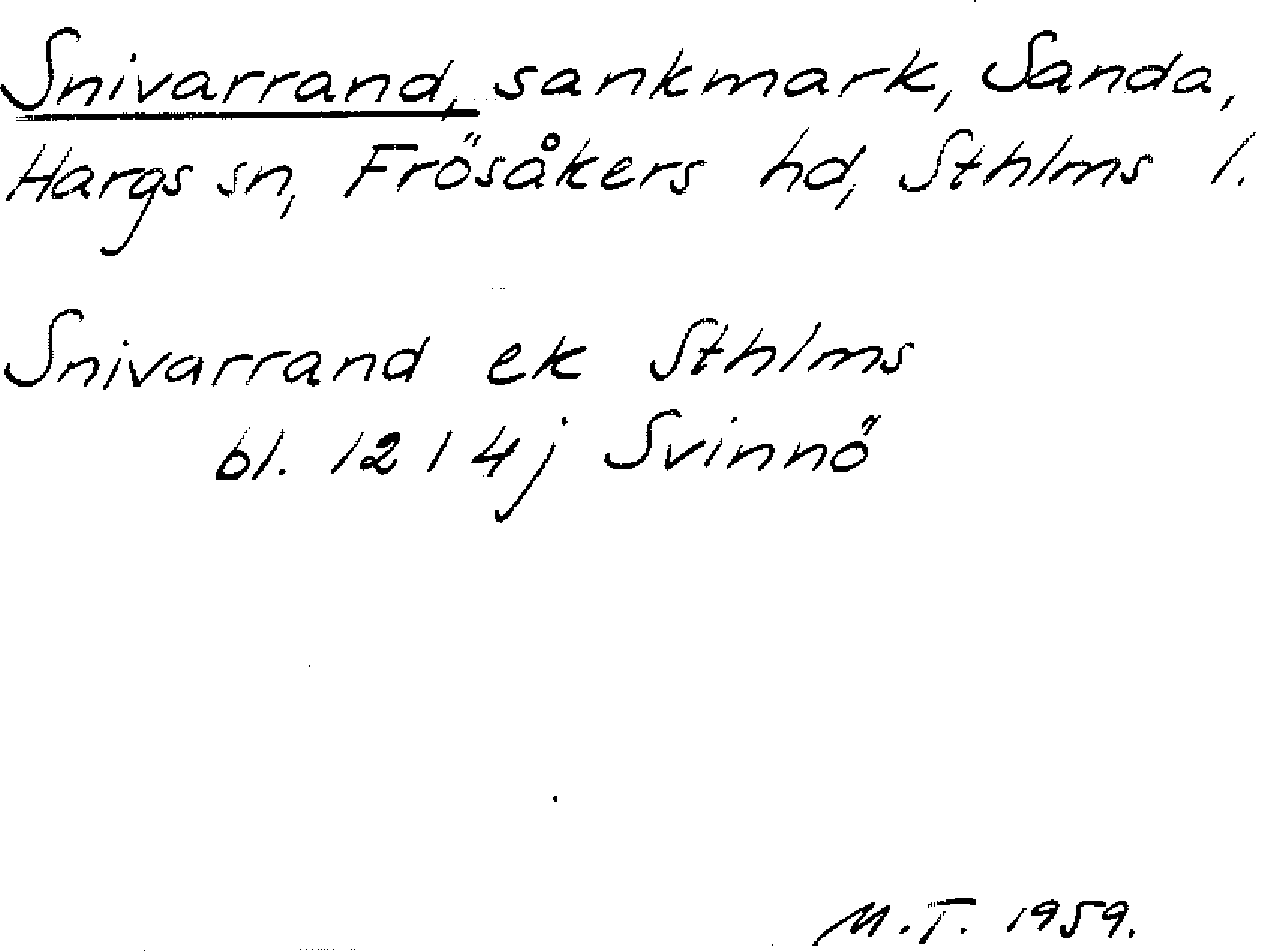 Snivarrand, sankmark, Sanda,
Hargs sn, Frösåkers hd, Sthlms l.
Snivarrand ek Sthlms
bl. 12 I 4j Svinnö
M.T. 1959.